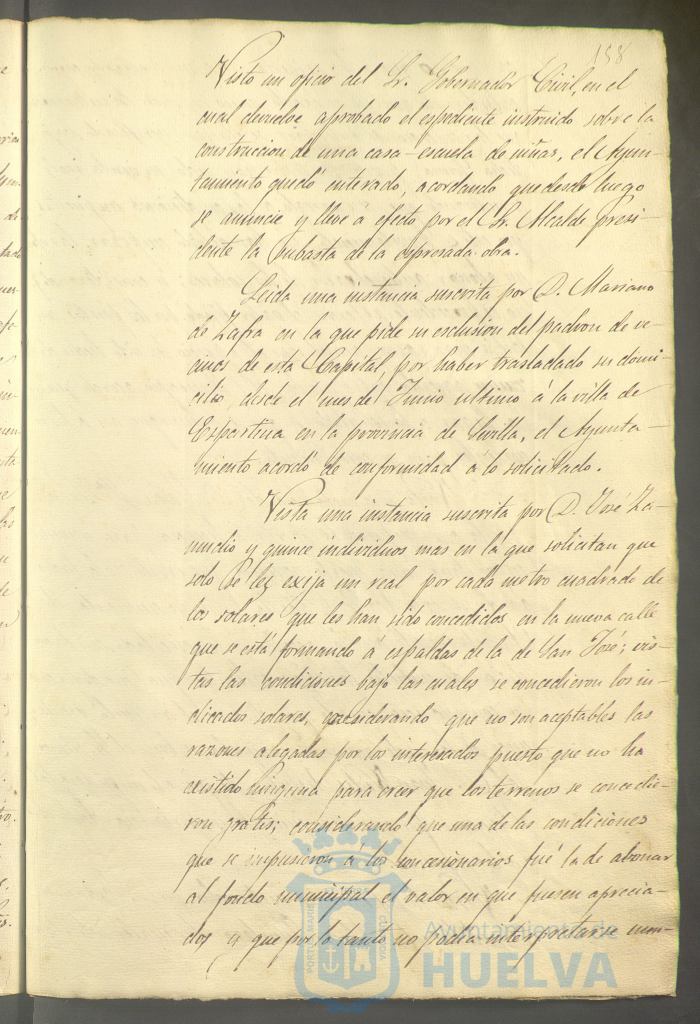 158
Visto un oficio del Sr. Gobernador Civil, en el
cual devuelve aprobado el espediente instruido sobre la
construccion de una casa-escuela de niñas, el Ayun-
tamiento quedó enterado, acordando que desde luego
se anuncie y lleve a efecto por el Sr. Alcalde presi-
dente la subasta de la espresada obra.
Leida una instancia suscrita por D. Mariano
de Zafra en la que pide su esclusion del padron de ve-
cinos de esta Capital, por haber trasladado su domi-
cilio, desde el mes de Junio ultimo á la villa de
Espartina en la provincia de Sevilla, el Ayunta-
miento acordó de conformidad á lo solicitado.
Vista una instancia suscrita por D. José Za-
mudio y quince individuos mas en la que solicitan que
solo se les exija un real por cada metro cuadrado de
los solares que les han sido concedidos en la nueva calle
que se está formando á espaldas de la de San José; vis-
tas las condiciones bajo las cuales se concedieron los in-
dicados solares, considerando que no son aceptables las
razones alegadas por los interesados puesto que no ha
existido ninguna para creer que los terrenos se concedie-
ron gratis; considerando que una de las condiciones
que se impusieron á los concesionarios fué la de abonar
al fondo municipal el valor en que fuesen aprecia-
dos y que por lo tanto no podia interpretarse
Ayuntamiento de
HUELVA